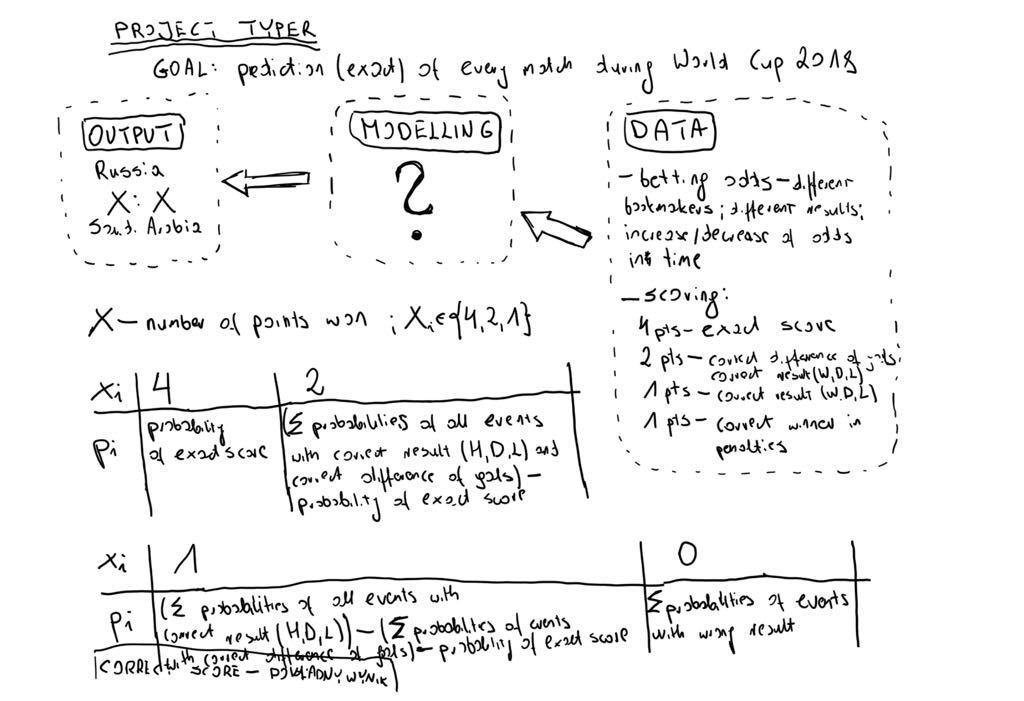 PROJECT TYPER
GOAL: prediction (exact) of every match during World Cup 2018
OUTPUT
Russia
X : X
Saud. Arabia
MODELLING
?
DATA
- betting odds - different
bookmakers; different results;
increase/decrease of odds
in time
- scoring:
4 pts - exact score
2 pts - correct difference of goals
correct result (W, D, L)
1 pts - correct result (W, D, L)
1 pts - correct winner in
penalties
X - number of points won ; Xi ∈ {4, 2, 1}
xi 4 2
pi
probability
of exact score
(Σ probabilities of all events
with correct result (H, D, L) and
correct difference of goals) -
probability of exact score
xi 1 0
pi
(Σ probabilities of all events with
correct result (H, D, L)) - (Σ probabilities of events
with correct difference of goals) - probability of exact score
Σ probabilities of events
with wrong result
CORRECT SCORE - DOKŁADNY WYNIK